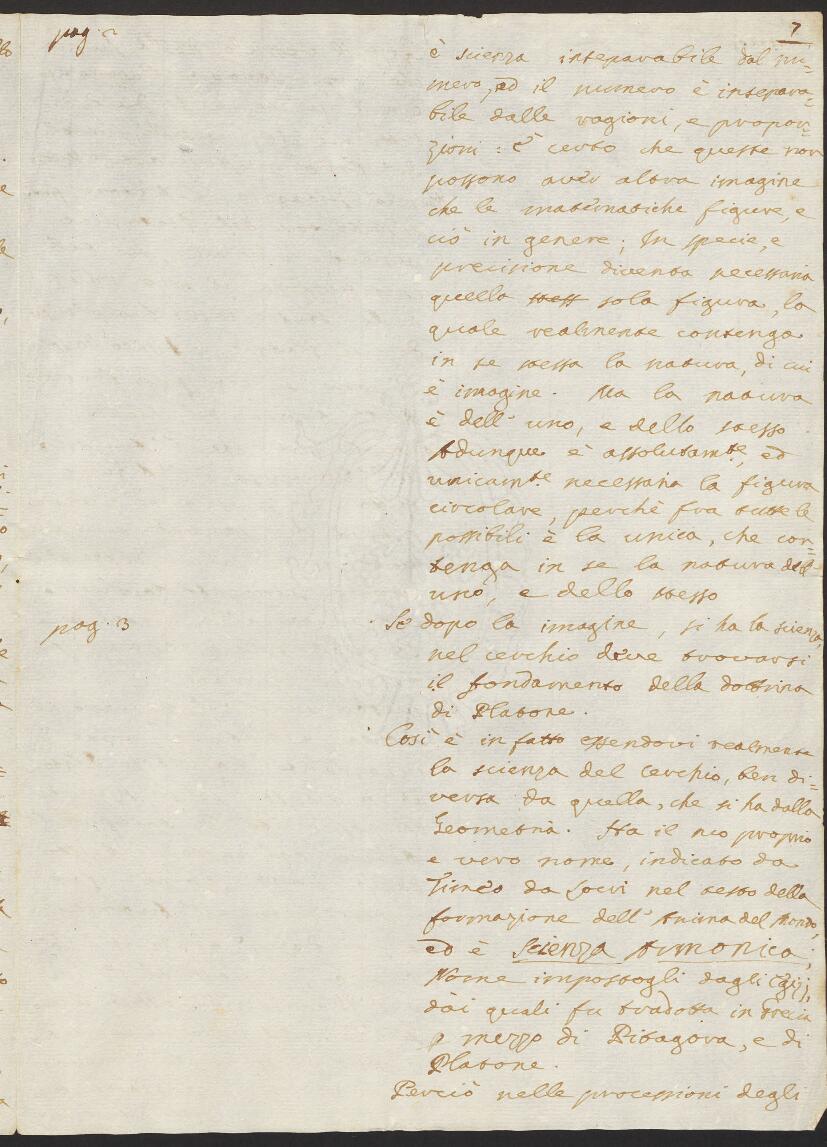 pag. 2
7
è scienza inseparabile dal nu=
mero, ed il numero è insepara=
bile dalle ragioni, e propor=
zioni: è certo che queste non
possono aver altra imagine
che le matematiche figure, e
ciò in genere; In specie, e
precisione diventa necessaria
quella stess sola figura, la
quale realmente contenga
in se stessa la natura, di cui
è imagine. Ma la natura
è dell'uno, e dello stesso
Adunque è assolutamte, ed
unicamte necessaria la figura
circolare, perchè fra tutte le
possibili è la unica, che con=
tenga in se la natura dell
uno, e dello stesso
pag. 3
Se dopo la imagine, si ha la scienza,
nel cerchio deve trovarsi
il fondamento della dottrina
di Platone.
Così è in fatto essendovi realmente
la scienza del cerchio, ben di=
versa da quella, che si ha dalla
Geometria. Ha il suo proprio
e vero nome, indicato da
Timeo da Locri nel testo della
formazione dell'Anima del Mondo,
ed è Scienza Armonica;
Nome impostogli dagli Egizj,
dai quali fu tradotta in Grecia
p mezzo di Pitagora, e di
Platone.
Perciò nelle processioni degli